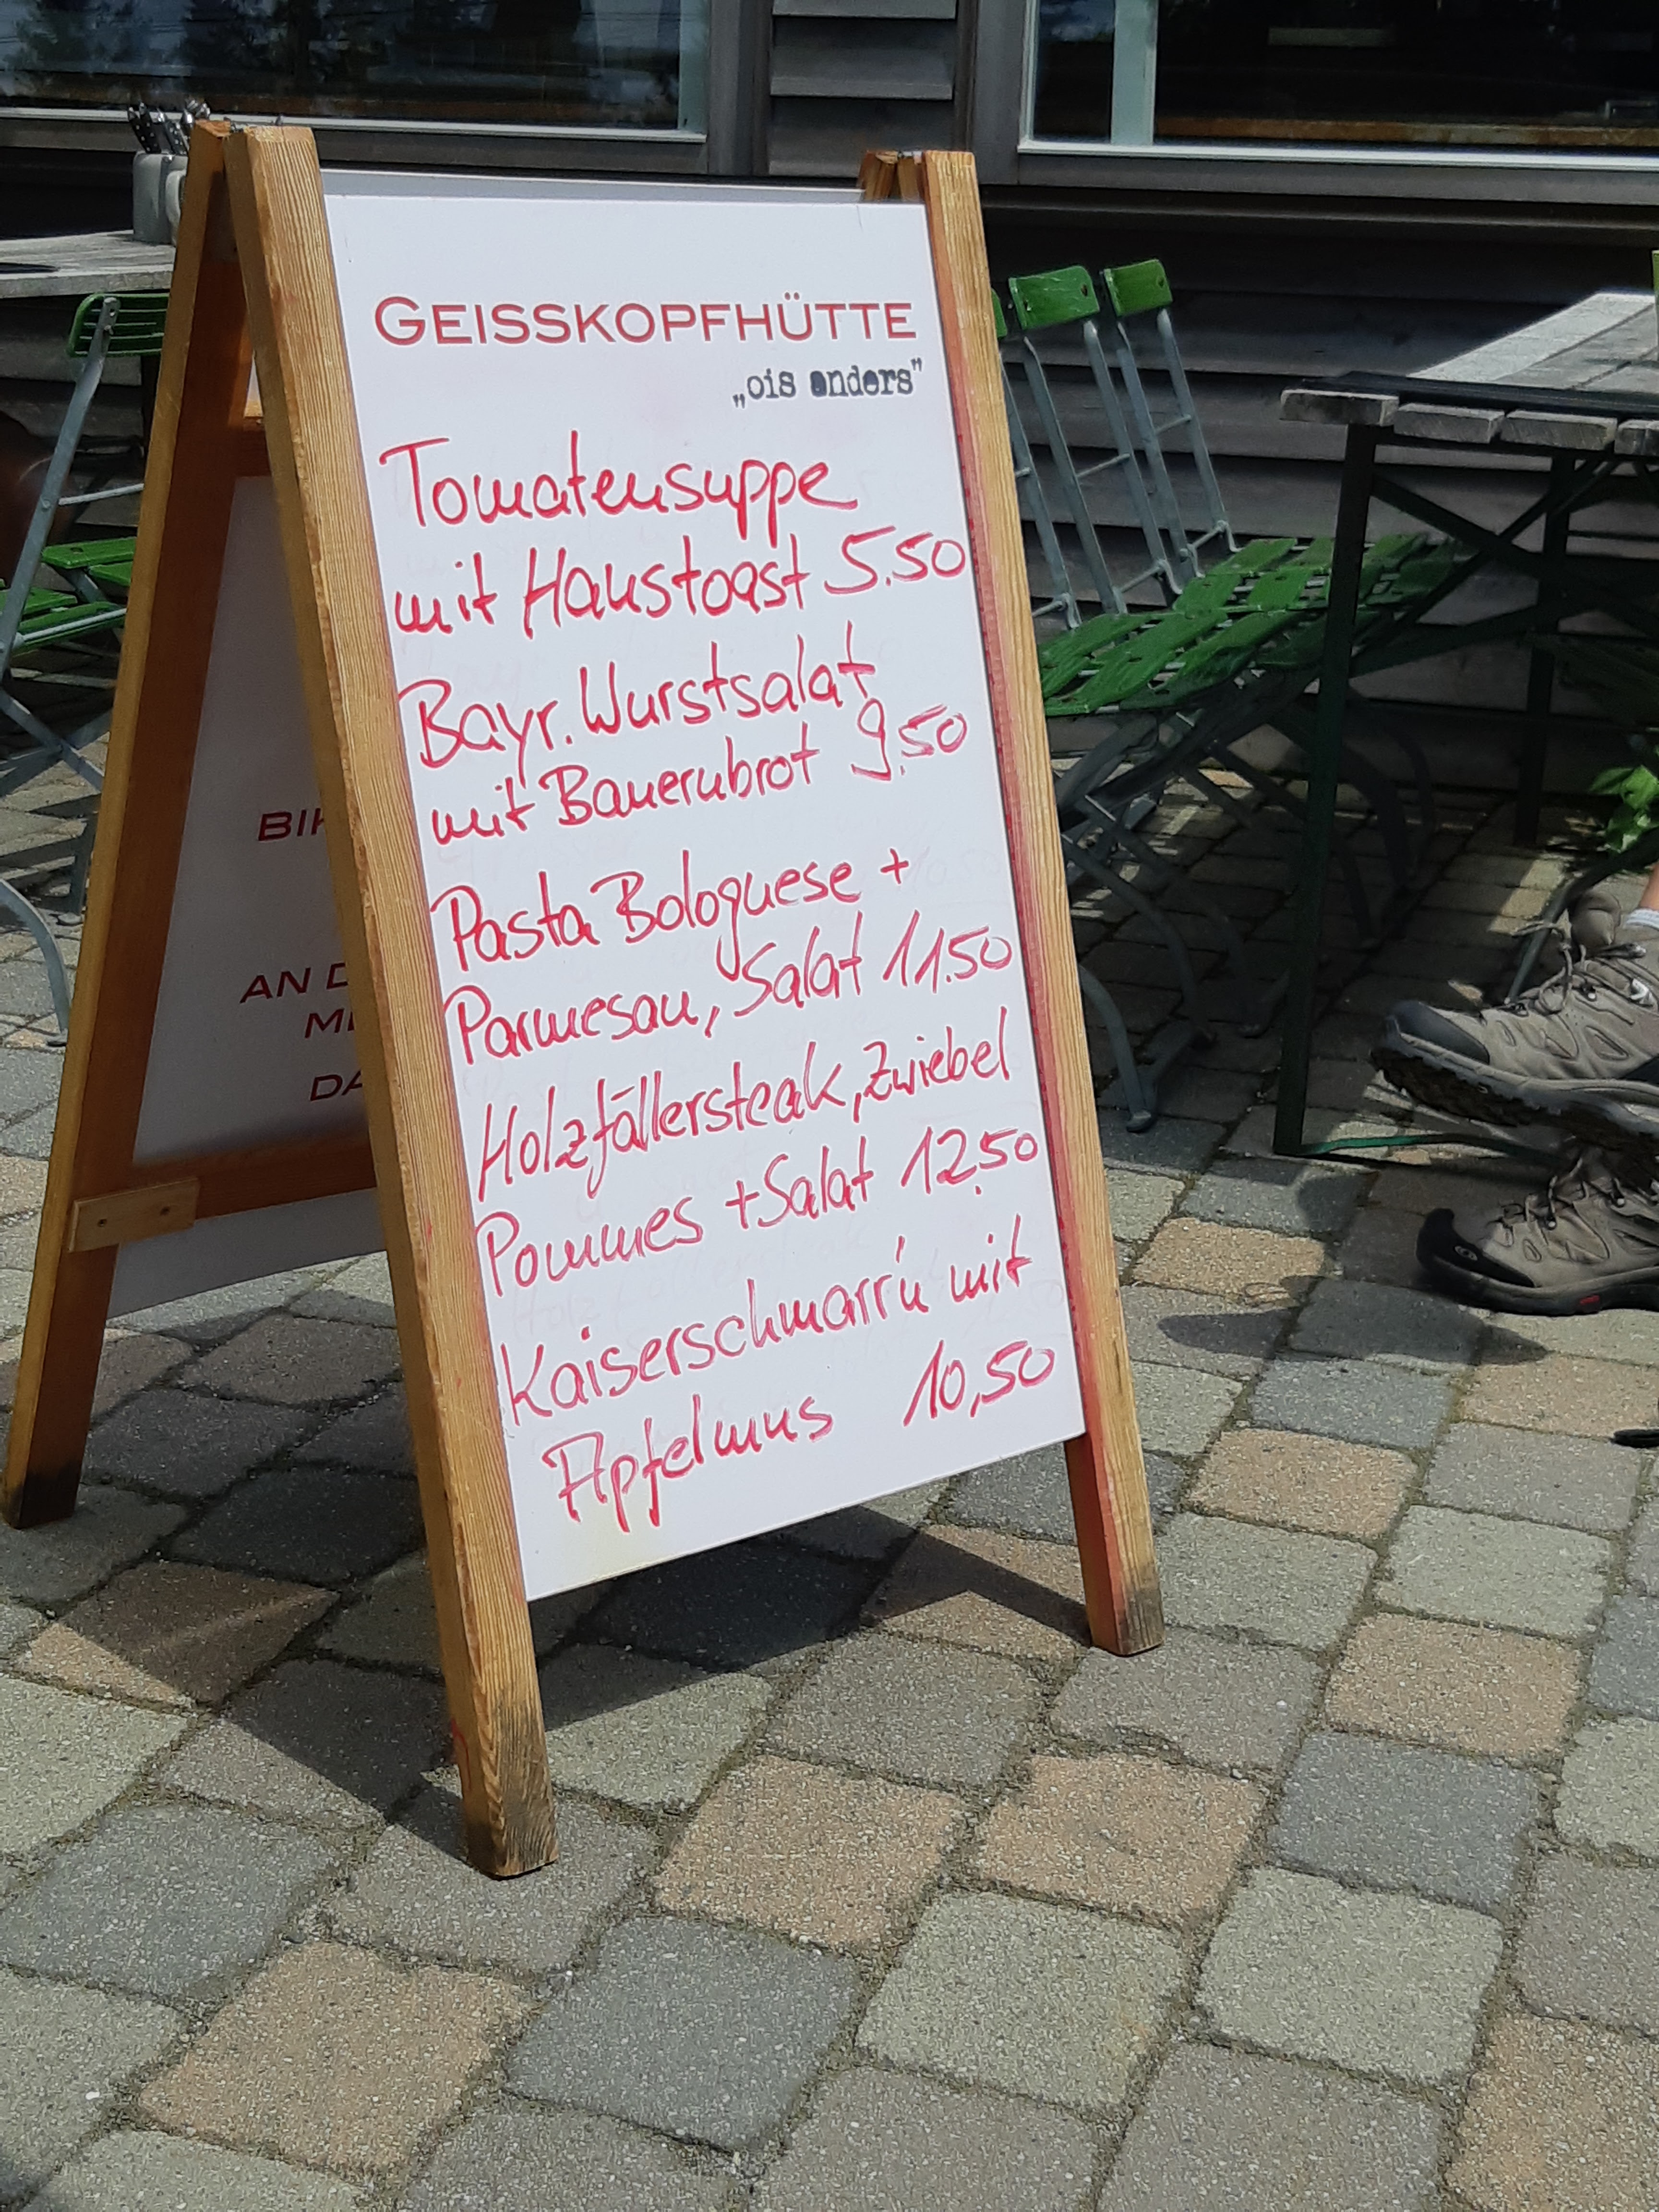 GEISSKOPFHÜTTE
„ois anders"
Tomatensuppe
mit Haustoast 5.50
Bayr. Wurstsalat
mit Bauernbrot 9.50
Pasta Bolognese +
Parmesan, Salat 11.50
Holzfällersteak, Zwiebel
Pommes + Salat 12.50
Kaiserschmarr'n mit
Apfelmus 10,50
AN